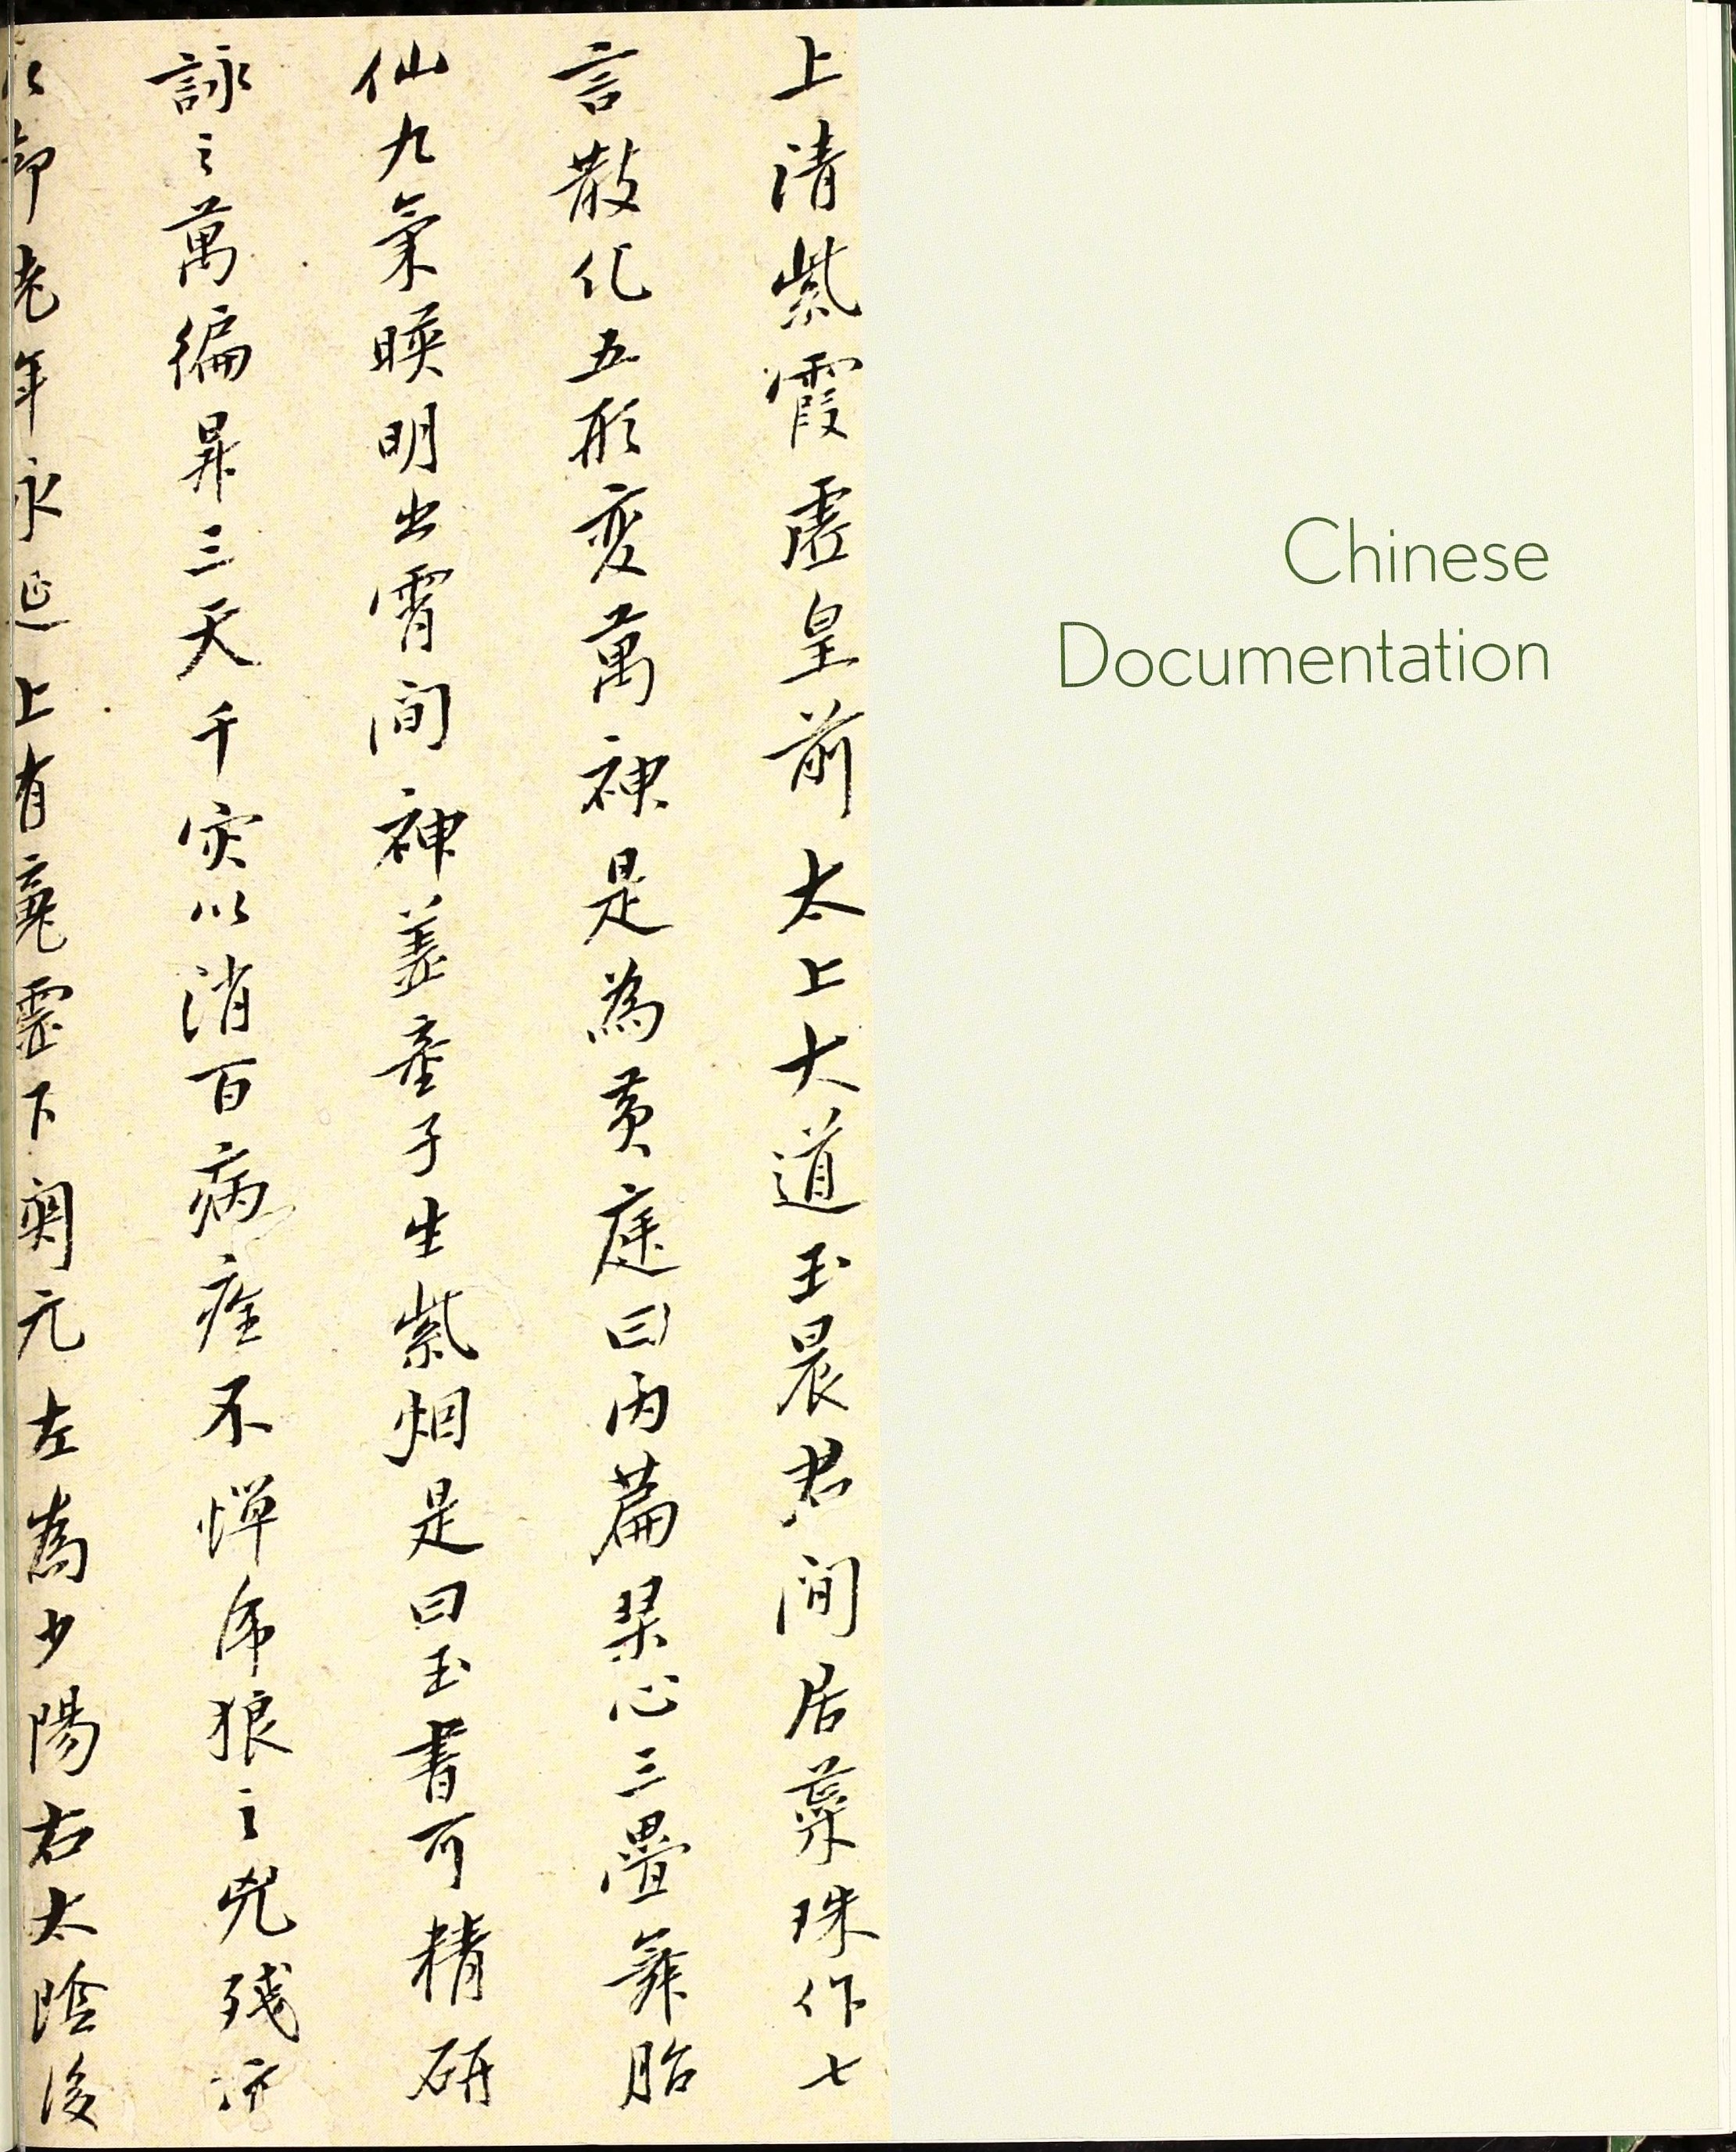 上清紫霞虛皇前太上大道玉晨君間居蘂珠作七
言散化五形變萬神是為黃庭曰內篇琹心三疊舞胎
仙九氣暎明出霄間神盖童子生紫烟是曰玉書可精研
詠之萬徧昇三天千災以消百病痊不憚虎狼之兇殘亦
以却老年永延上有䰟靈下關元左為少陽右太陰後
Chinese
Documentation